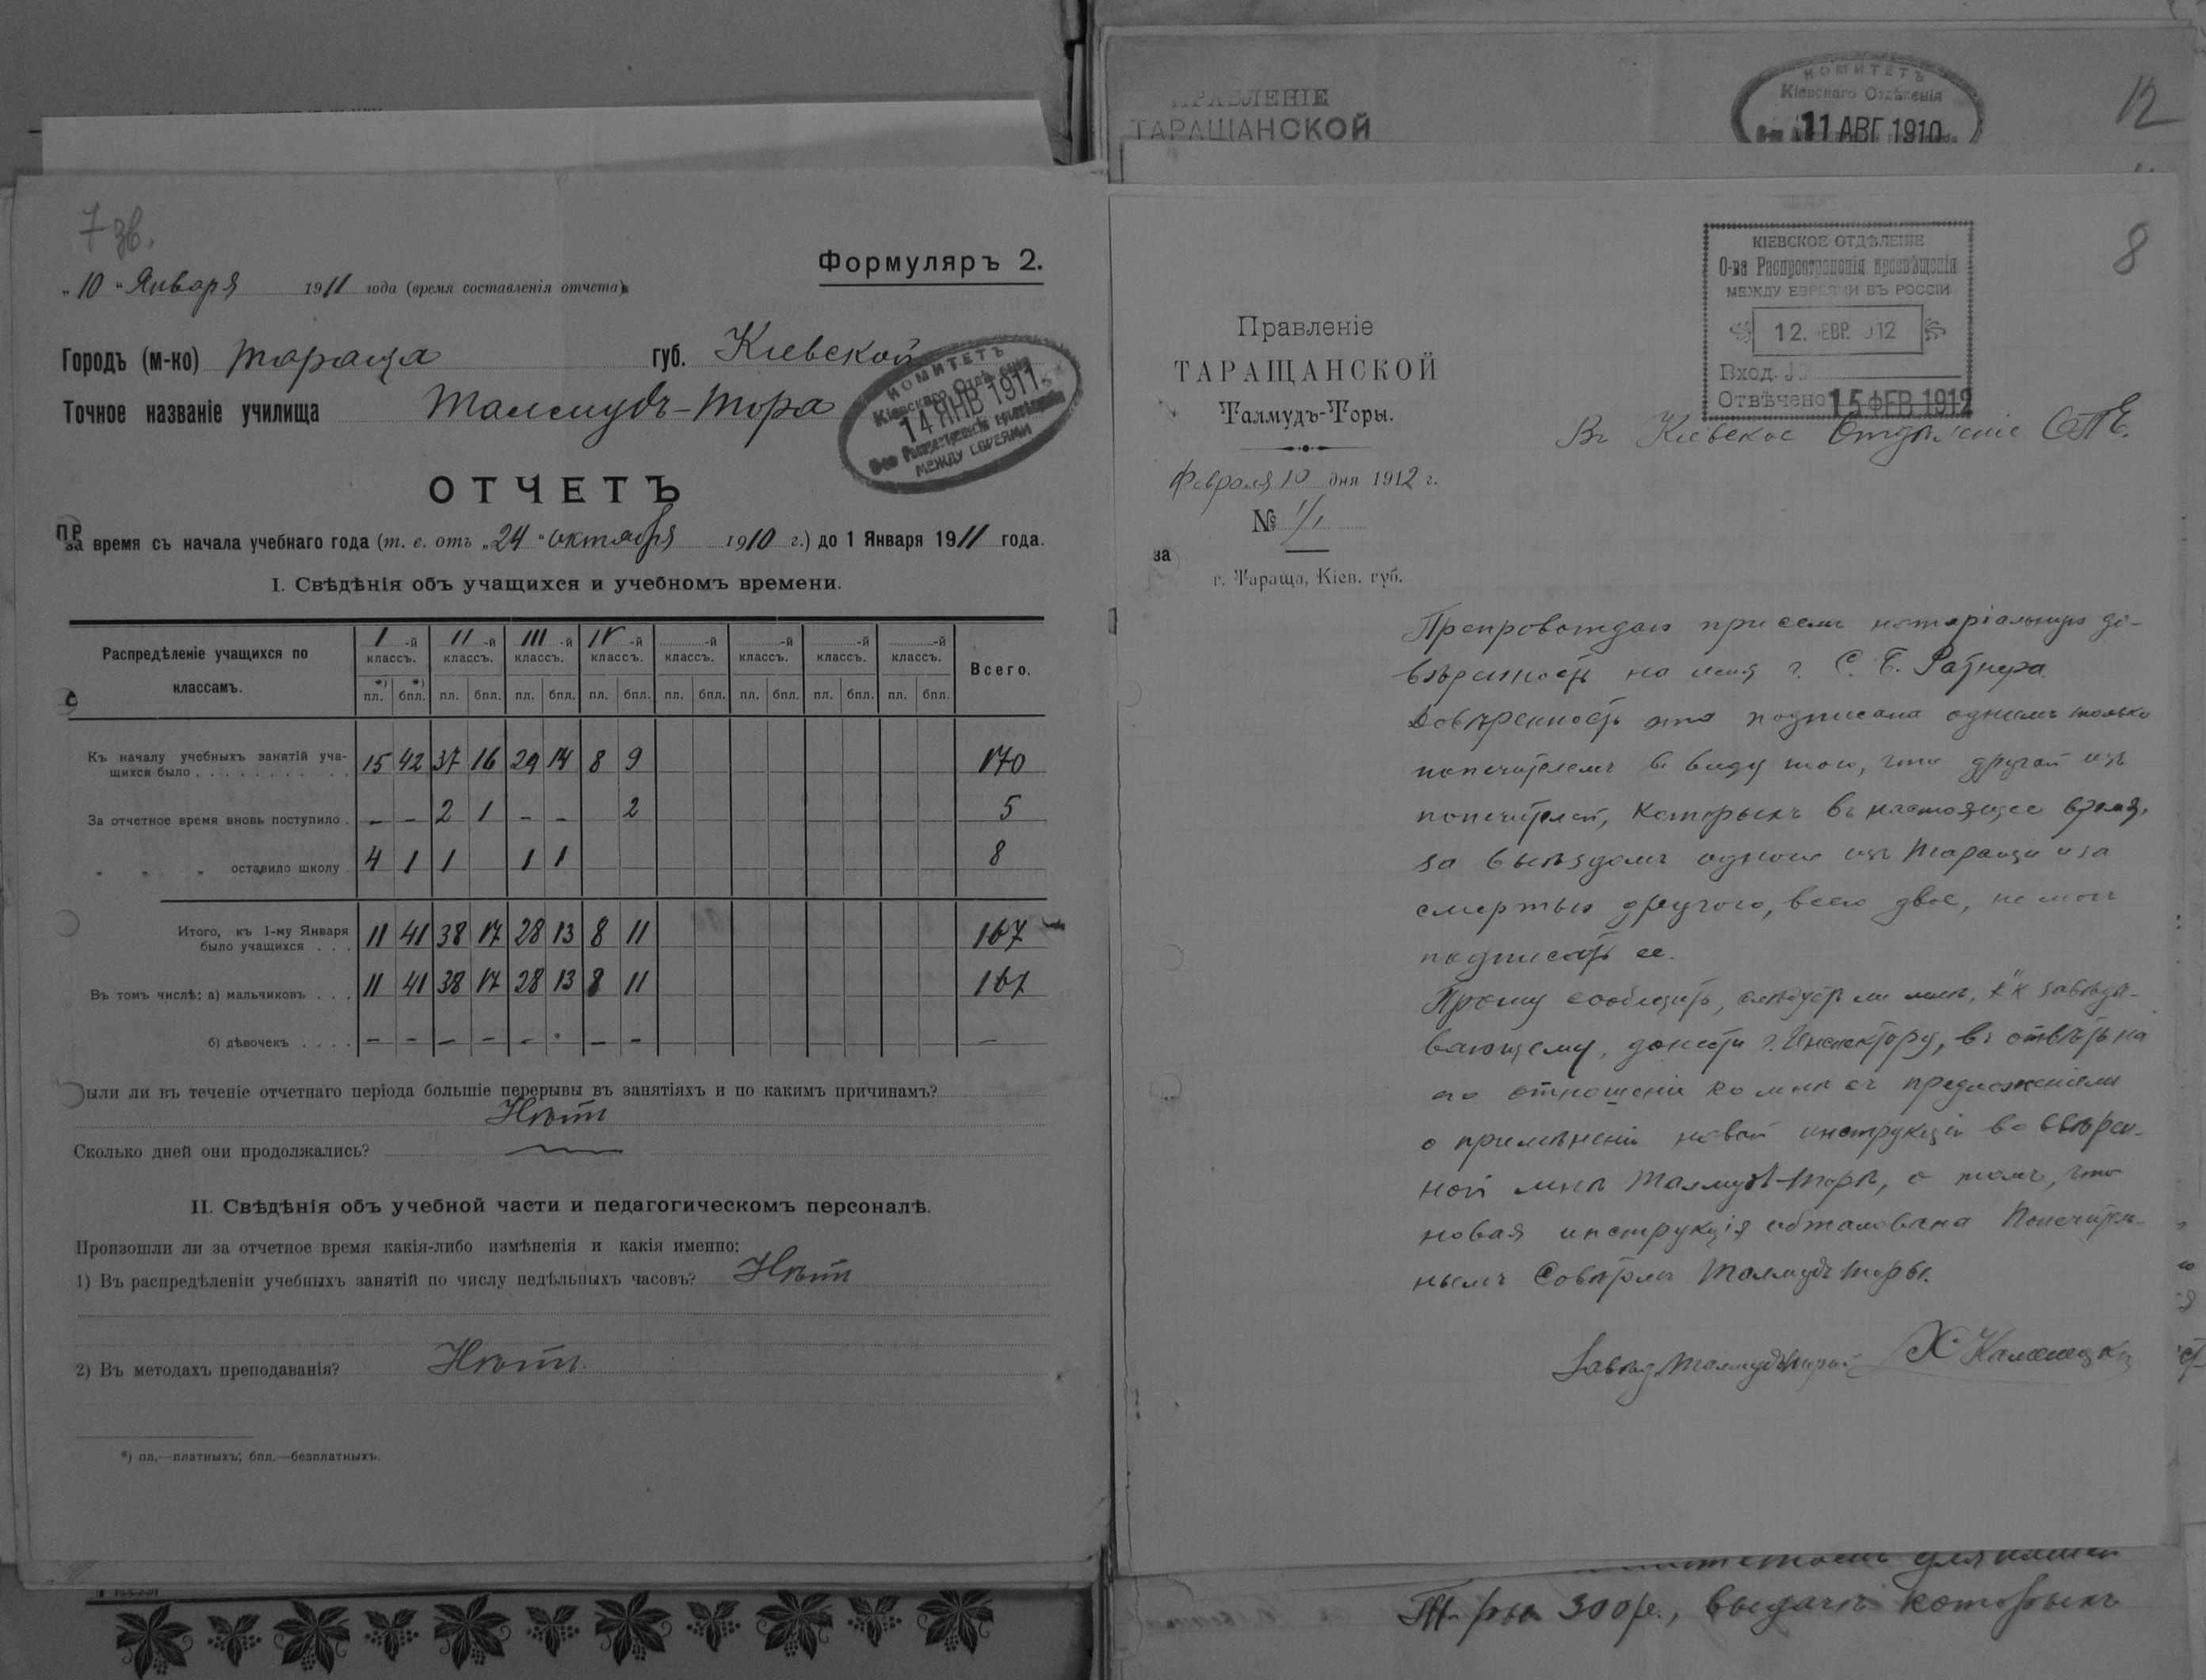 7 зв.
Формуляръ 2.
„10“ Января 1911 года (время составленія отчета)
Городъ (м-ко) Тараща губ. Кіевской
Точное названіе училища Талмудъ-Тора
КОМИТЕТЪ
Кіевскаго Отдѣленія
14 ЯНВ 1911
О-ва Распространенія просвѣщенія
МЕЖДУ ЕВРЕЯМИ
ОТЧЕТЪ
за время съ начала учебнаго года (т. е. отъ „24“ октября 1910 г.) до 1 Января 1911 года.
I. Свѣдѣнія объ учащихся и учебномъ времени.
Распредѣленіе учащихся по классамъ. I-й классъ. II-й классъ. III-й классъ. IV-й классъ. -й классъ. -й классъ. -й классъ. -й классъ. Всего.
*) пл. *) бпл. пл. бпл. пл. бпл. пл. бпл. пл. бпл. пл. бпл. пл. бпл. пл. бпл.
Къ началу учебныхъ занятій уча-
щихся было 15 42 37 16 29 14 8 9 170
За отчетное время вновь поступило — — 2 1 — — 2 5
„ „ „ оставило школу 4 1 1 1 1 8
Итого, къ 1-му Января
было учащихся 11 41 38 17 28 13 8 11 167
Въ томъ числѣ: а) мальчиковъ 11 41 38 17 28 13 8 11 167
б) дѣвочекъ — — — — — - — — —
ыли ли въ теченіе отчетнаго періода большіе перерывы въ занятіяхъ и по какимъ причинамъ?
Нѣтъ
Сколько дней они продолжались? —
II. Свѣдѣнія объ учебной части и педагогическомъ персоналѣ.
Произошли ли за отчетное время какія-либо измѣненія и какія именно:
1) Въ распредѣленіи учебныхъ занятій по числу недѣльныхъ часовъ? Нѣтъ
2) Въ методахъ преподаванія? Нѣтъ
*) пл.—платныхъ; бпл.—безплатныхъ.
ПРАВЛЕНІЕ
ТАРАЩАНСКОЙ
КОМИТЕТЪ
Кіевскаго Отдѣленія
11 АВГ 1910
12
8
КІЕВСКОЕ ОТДѢЛЕНІЕ
О-ва Распространенія просвѣщенія
МЕЖДУ ЕВРЕЯМИ ВЪ РОССІИ
12. ФЕВР. 1912
Вход. №
Отвѣчено 15 ФЕВ 1912
Правленіе
ТАРАЩАНСКОЙ
Талмудъ-Торы.
Февраля 10 дня 1912 г.
№
за
г. Тараща, Кіев. губ.
Въ Кіевское Отдѣленіе ОПЕ.
Препровождаю при семъ нотаріальную до-
вѣренность на имя г. С. Б. Ратнера.
Довѣренность эта подписана однимъ только
попечителемъ въ виду того, что другой изъ
попечителей, которыхъ въ настоящее время,
за выѣздомъ одного изъ Таращи и за
смертью другого, всего двое, не могъ
подписать ее.
Прошу сообщить, слѣдуетъ ли мнѣ, к'к завѣды-
вающему, донести г. Инспектору, въ отвѣтъ на
его отношеніе ко мнѣ съ предложеніемъ
о примѣненіи новой инструкціи во ввѣрен-
ной мнѣ Талмудъ-Торѣ, о томъ, что
новая инструкція обжалована Попечитель-
нымъ Совѣтомъ Талмудъ Торы.
Завѣд. Талмудъ Торой Х. Каменецкій
Т-Торы 300 р., выдачи которыхъ